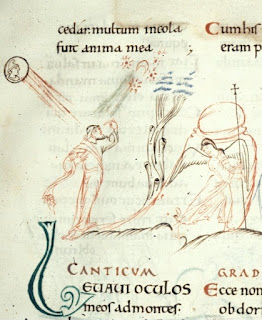 cedar; multum incola
fuit anima mea
Cum his
eram p
CANTICUM GRAD
LEUAUI OCULOS
meos ad montes
Ecce non
obdor